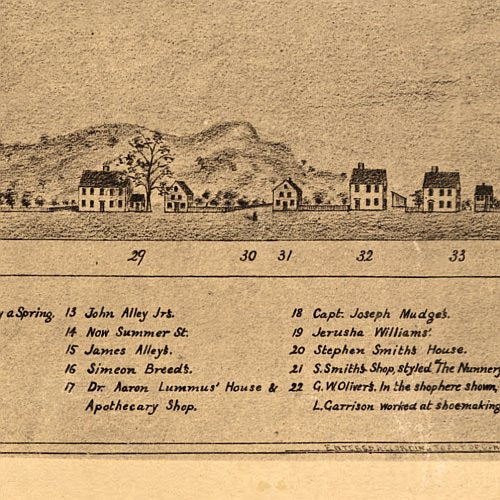 29 30 31 32 33
y a Spring.
13 John Alley Jr's.
14 Now Summer St.
15 James Alley's.
16 Simeon Breed's.
17 Dr. Aaron Lummus' House &
Apothecary Shop.
18 Capt. Joseph Mudge's.
19 Jerusha Williams'.
20 Stephen Smith's House.
21 S. Smith's Shop, styled "The Nunnery
22 G. W. Oliver's. In the shop here shown,
L. Garrison worked at shoemaking
ENTERED ACCORDING TO ACT OF